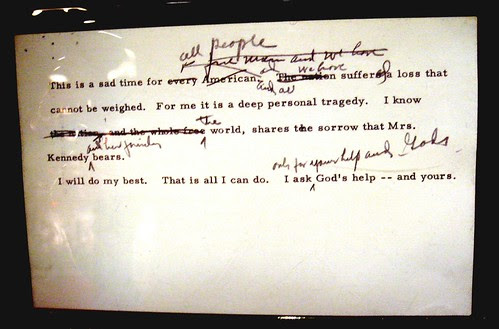 all people
free man and we have
we have
This is a sad time for every American. The nation suffers a loss that
and all
cannot be weighed. For me it is a deep personal tragedy. I know
the
the nation, and the whole free world, shares the sorrow that Mrs.
and her family
Kennedy bears.
only for your help and God's
I will do my best. That is all I can do. I ask God's help -- and yours.